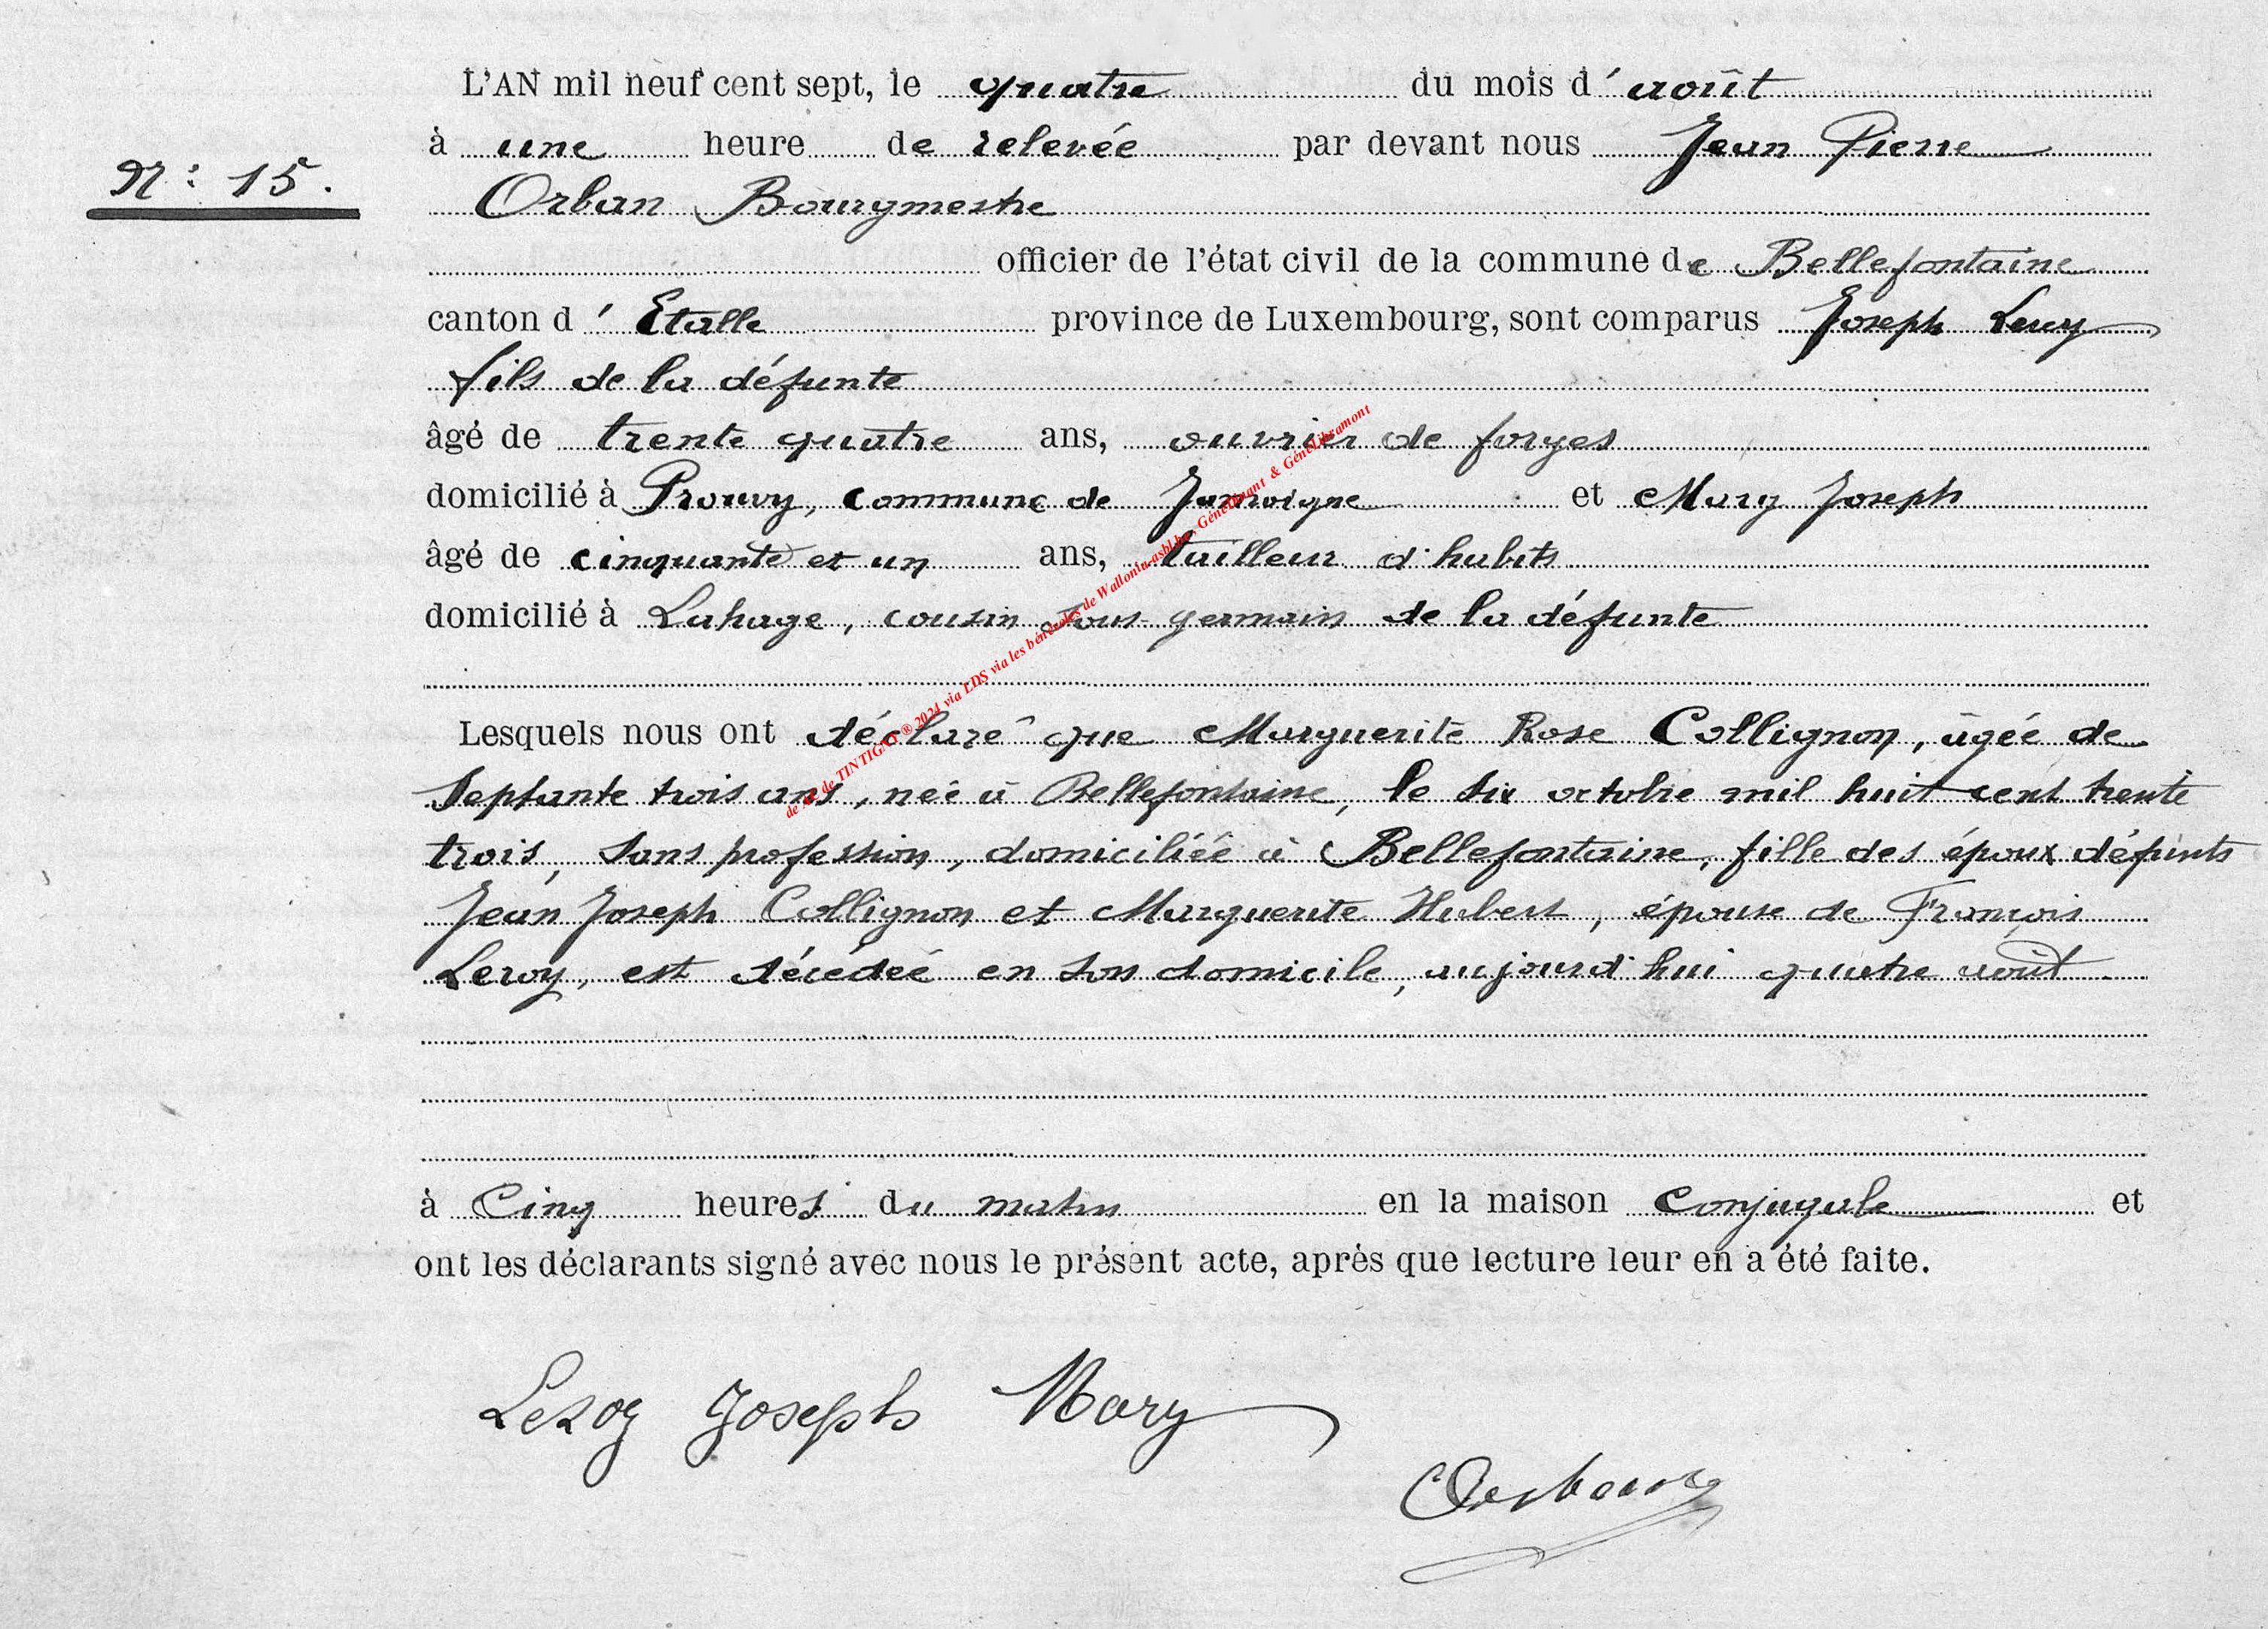 L'AN mil neuf cent sept, le quatre du mois d'août
à une heure de relevée par devant nous Jean Pierre
N: 15.
Orban Bourgmestre
officier de l'état civil de la commune de Bellefontaine
canton d'Etalle province de Luxembourg, sont comparus Joseph Leroy
fils de la défunte
âgé de trente quatre ans, ouvrier de forges
domicilié à Prouvy, commune de Jamoigne et Mary Joseph
âgé de cinquante et un ans, tailleur d'habits
domicilié à Lahage, cousin sous-germain de la défunte
Lesquels nous ont déclaré que Marguerite Rose Collignon, âgée de
Septante trois ans, née à Bellefontaine, le six octobre mil huit cent trente
trois, sans profession, domiciliée à Bellefontaine, fille des époux défunts
Jean Joseph Collignon et Marguerite Hubert, épouse de François
Leroy, est décédée en son domicile, aujourd'hui quatre août
à Cinq heures du matin en la maison conjugale et
ont les déclarants signé avec nous le présent acte, après que lecture leur en a été faite.
Leroy Joseph Mary
de TINTIGNY ® 2024 via LDS via les bénévoles de Wallonia-asbl.be - GénéDinant & GénéLibramont